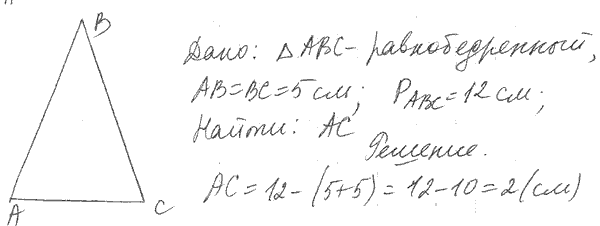 B
Дано: △ ABC - равнобедренный,
AB=BC=5 см; P_ABC=12 см;
Найти: AC
Решение.
AC = 12 - (5+5) = 12 - 10 = 2 (см)
A C